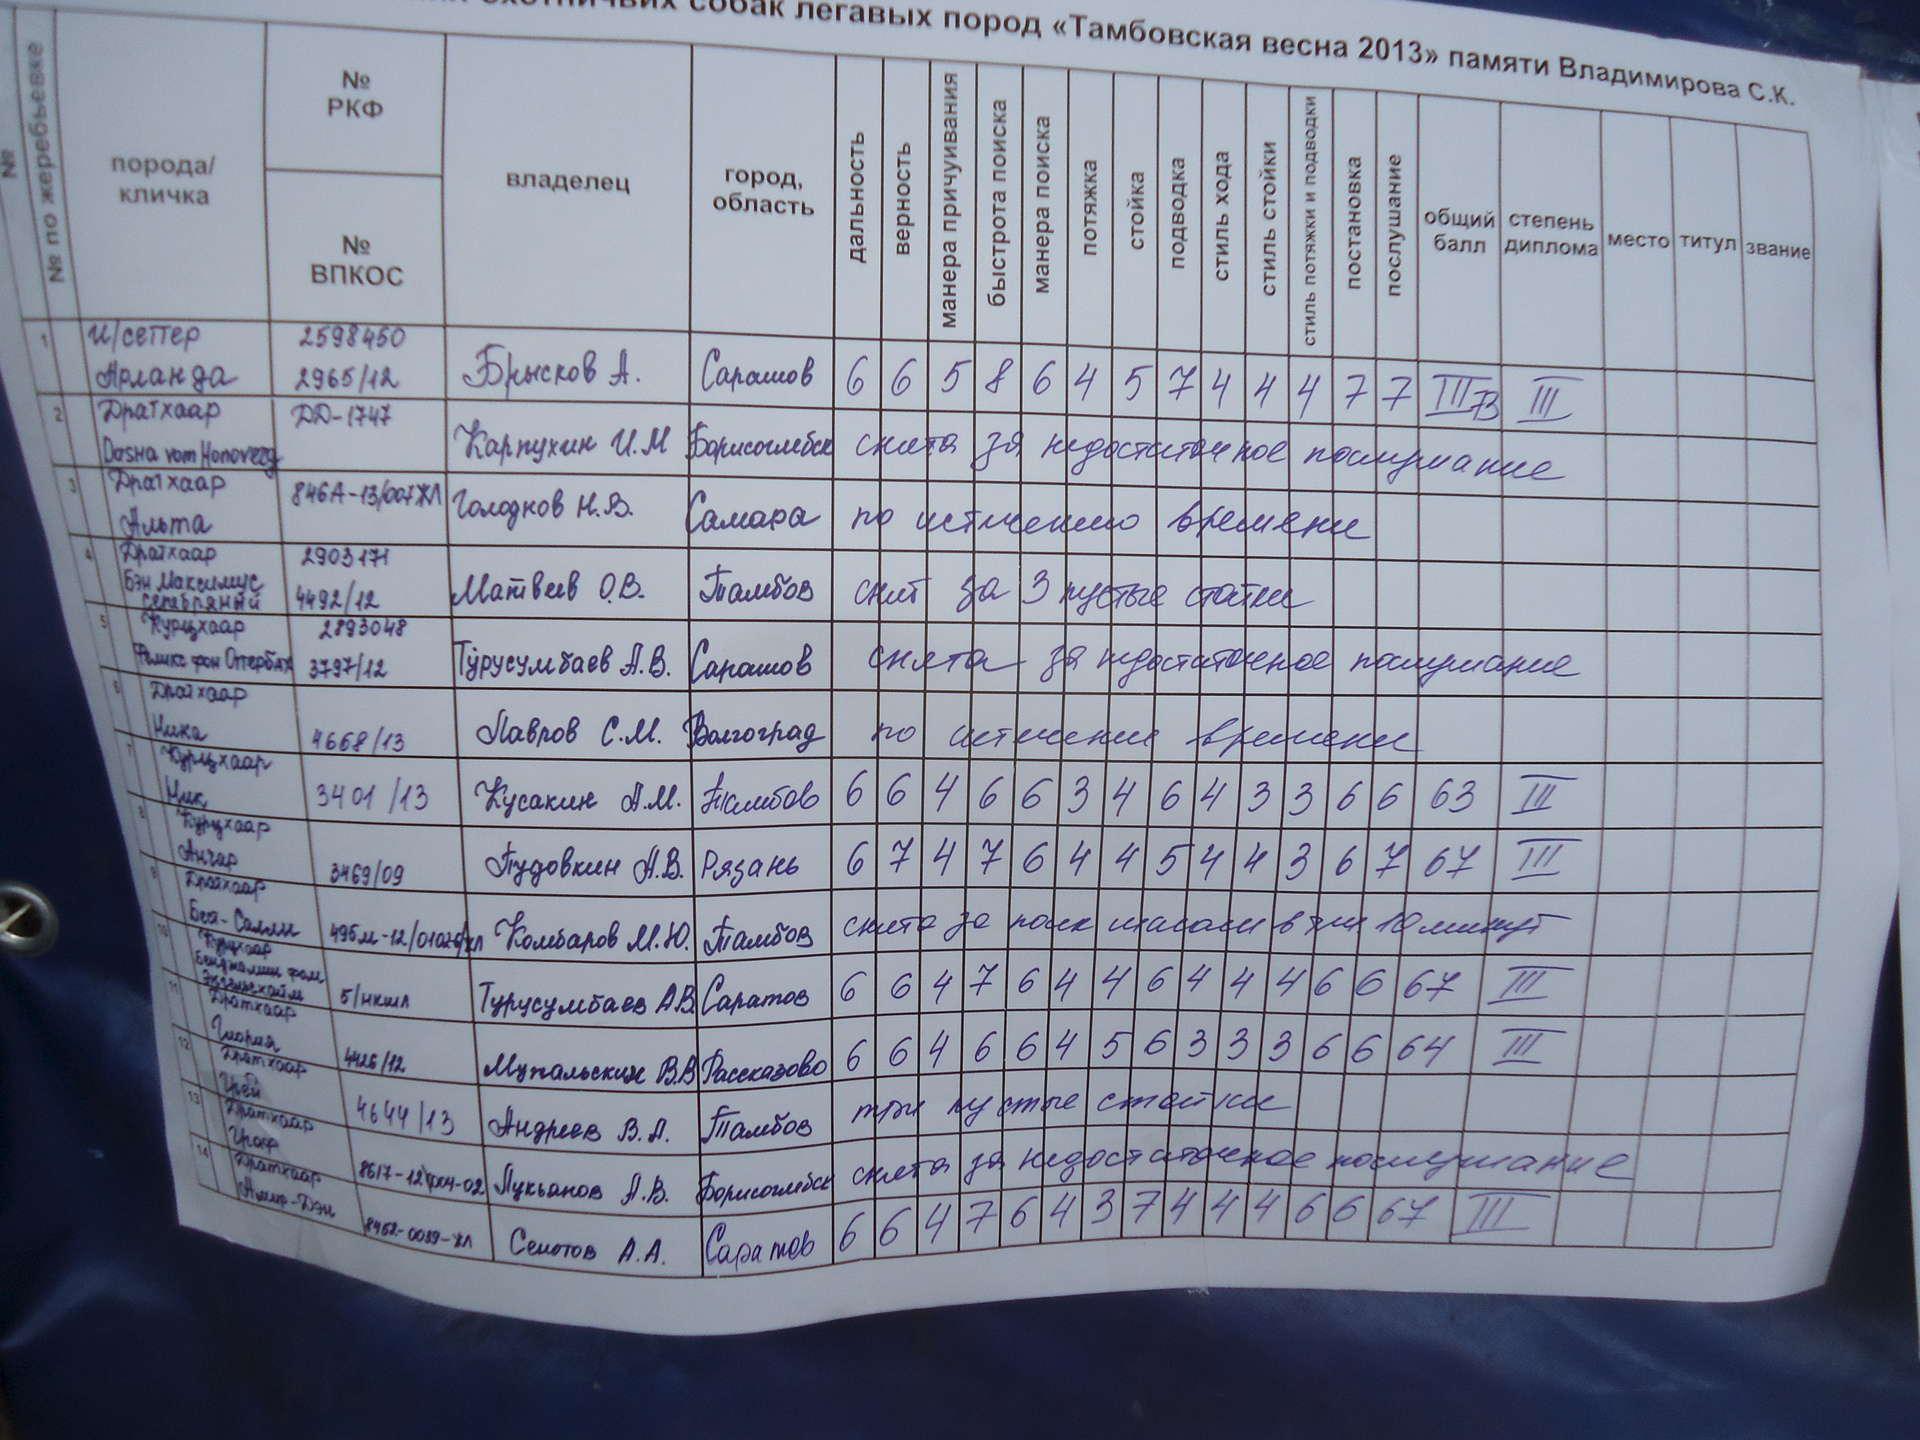 охотничьих собак легавых пород «Тамбовская весна 2013» памяти Владимирова С.К.
№
№ по жеребьевке
порода/
кличка
№
РКФ
№
ВПКОС
владелец
город,
область
дальность
верность
манера причуивания
быстрота поиска
манера поиска
потяжка
стойка
подводка
стиль хода
стиль стойки
стиль потяжки и подводки
постановка
послушание
общий
балл
степень
диплома
место
титул
звание
1 И/сеттер 2598450
Арланда 2965/12 Брысков А. Саратов 6 6 5 8 6 4 5 7 4 4 4 7 7 III 73 III
2 Дратхаар DD-1747
Dasha vom Карпухин И.М Борисоглебск снята за недостаточное послушание
3 Дратхаар 846А-13/007ЖЛ
Альта Голодков Н.В. Самара по истечению времени
4 Дратхаар 2903171
Бэн Максимус
серебряный 4492/12 Матвеев О.В. Тамбов снят за 3 пустые стойки
5 Курцхаар 2893048
Феликс фон Оттербах 3797/12 Турусумбаев А.В. Саратов снята за недостаточное послушание
6 Дратхаар
Ника 4668/13 Лавров С.М. Волгоград по истечение времени
7 Курцхаар
Ник 3401/13 Кусакин А.М. Тамбов 6 6 4 6 6 3 4 6 4 3 3 6 6 63 III
8 Курцхаар
Анчар 3469/09 Пудовкин А.В. Рязань 6 7 4 7 6 4 4 5 4 4 3 6 7 67 III
9 Дратхаар
Бея-Салли Комбаров М.Ю. Тамбов снята за поиск шагом в 10 минут
10 Курцхаар
Бенджамин фон
5/нкшл Турусумбаев А.В. Саратов 6 6 4 7 6 4 4 6 4 4 4 6 6 67 III
11 Дратхаар
Глория 4426/12 В.В. Рассказово 6 6 4 6 6 4 5 6 3 3 3 6 6 64 III
12 Дратхаар
4644/13 Андреев В.А. Тамбов три пустые стойки
13 Дратхаар
Лукьянов А.В. Борисоглебск снята за недостаточное послушание
14 Дратхаар
Амир-Дэн А.А. Саратов 6 6 4 7 6 4 3 7 4 4 4 6 6 67 III